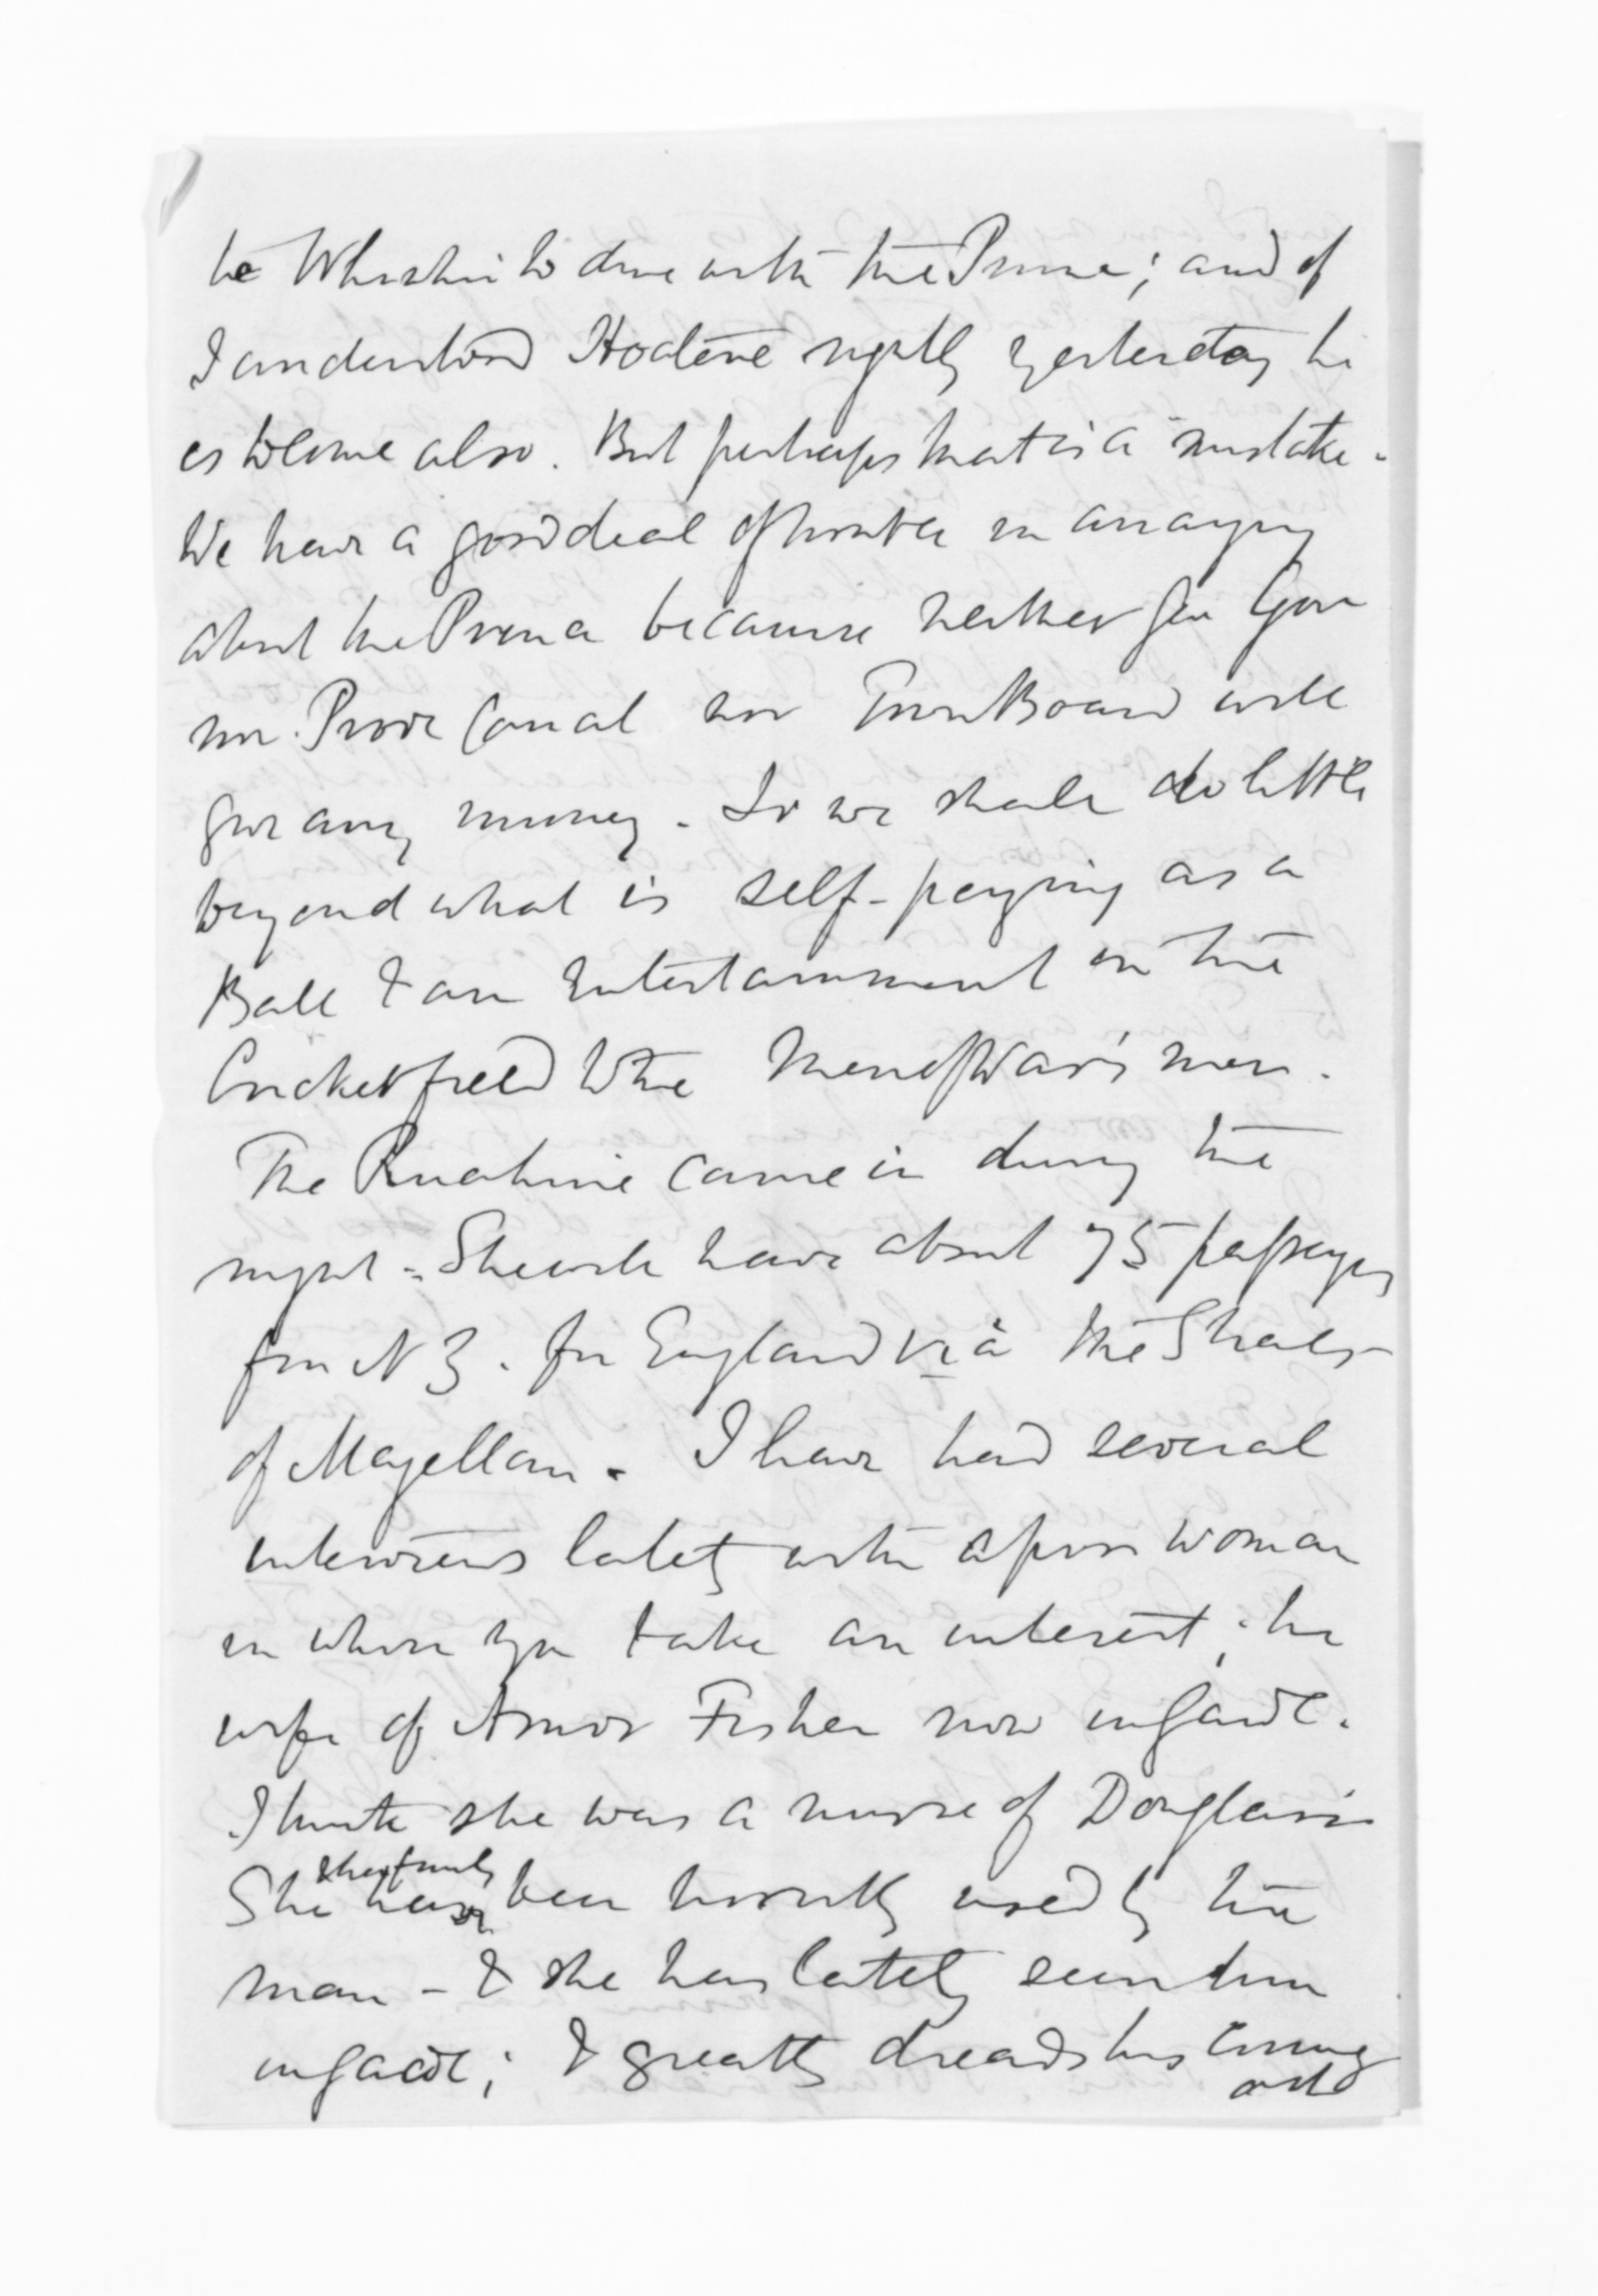 be Whisker to dine with the Prince; and if
I understood Hoatene rightly yesterday he
is to come also. But perhaps that is a mistake.
We have a good deal of trouble in arranging
about the Prince because neither Gen Govt
nor Provl Council nor Town Board will
give any money. So we shall do little
beyond what is self-paying as a
Ball & an Entertainment in the
Cricket field to the Men of War's men.
The Ruahine came in during the
night. She will have about 75 passengers
from N Z. for England via the Straits
of Magellan. I have had several
interviews lately with a poor woman
in whom you take an interest; the
wife of Amos Fisher now in gaol.
I think she was a nurse of Douglas's
She & her family have been horribly used by the
man - & she has lately seen him
in gaol; & greatly dreads his coming
out